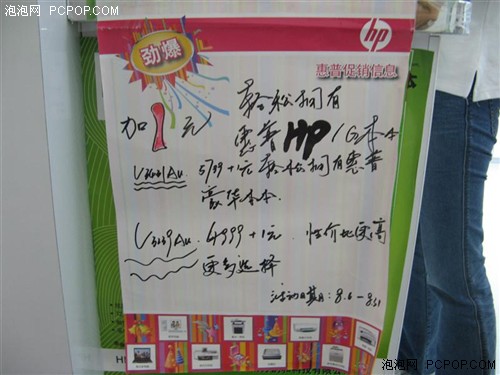 泡泡网 PCPOP.COM
泡泡网 PCPOP.COM
hp
劲爆
惠普促销信息
轻松拥有
加1元
惠普HP/G本本
5799+1元 轻松拥有惠普
豪华本本
4999+1元 性价比更高
更多选择
活动日期:8.6-8.31
泡泡网 PCPOP.COM
泡泡网 PCPOP.COM